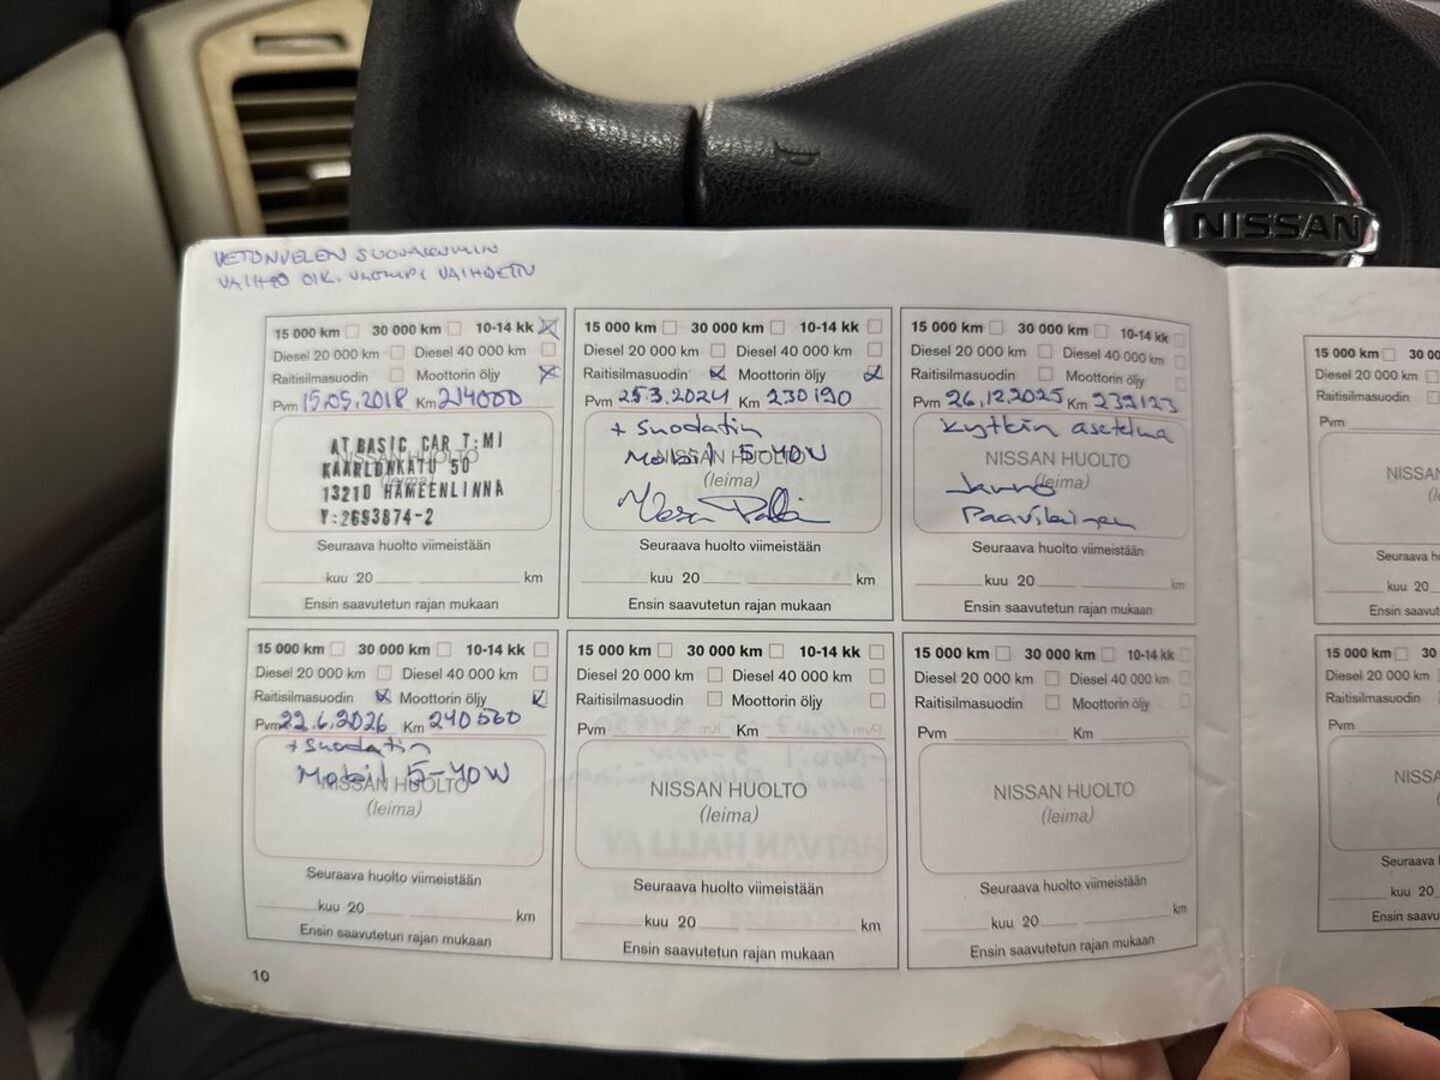 NISSAN
VETONIVELEN SUOJAKUMIN
VAIHTO OIK. ULOMPI VAIHDETTU
15 000 km 30 000 km 10-14 kk
Diesel 20 000 km Diesel 40 000 km
Raitisilmasuodin Moottorin öljy
Pvm 15.05.2018 Km 214000
AT BASIC CAR T:MI
NISSAN HUOLTO
KAARLONKATU 50
(leima)
13210 HÄMEENLINNA
Y:2693874-2
Seuraava huolto viimeistään
kuu 20 km
Ensin saavutetun rajan mukaan
15 000 km 30 000 km 10-14 kk
Diesel 20 000 km Diesel 40 000 km
Raitisilmasuodin Moottorin öljy
Pvm 25.3.2024 Km 230190
+ Suodatin
Mobil 5-40W
NISSAN HUOLTO
(leima)
Vesa
Seuraava huolto viimeistään
kuu 20 km
Ensin saavutetun rajan mukaan
15 000 km 30 000 km 10-14 kk
Diesel 20 000 km Diesel 40 000 km
Raitisilmasuodin Moottorin öljy
Pvm 26.12.2025 Km 239123
Kytkin asetelma
NISSAN HUOLTO
(leima)
Janno
Paavilainen
Seuraava huolto viimeistään
kuu 20 km
Ensin saavutetun rajan mukaan
15 000 km 30 000 km 10-14 kk
Diesel 20 000 km Diesel 40 000 km
Raitisilmasuodin Moottorin öljy
Pvm 22.6.2026 Km 240560
+ Suodatin
Mobil 5-40W
NISSAN HUOLTO
(leima)
Seuraava huolto viimeistään
kuu 20 km
Ensin saavutetun rajan mukaan
15 000 km 30 000 km 10-14 kk
Diesel 20 000 km Diesel 40 000 km
Raitisilmasuodin Moottorin öljy
Pvm Km
NISSAN HUOLTO
(leima)
Seuraava huolto viimeistään
kuu 20 km
Ensin saavutetun rajan mukaan
15 000 km 30 000 km 10-14 kk
Diesel 20 000 km Diesel 40 000 km
Raitisilmasuodin Moottorin öljy
Pvm Km
NISSAN HUOLTO
(leima)
Seuraava huolto viimeistään
kuu 20 km
Ensin saavutetun rajan mukaan
10
15 000 km 30 00
Diesel 20 000 km
Raitisilmasuodin
Pvm
NISSAN
Seuraava hu
kuu 20
Ensin saavut
15 000 km 30
Diesel 20 000 km
Raitisilmasuodin
Pvm
NISSA
Seuraava
kuu 20
Ensin saavu